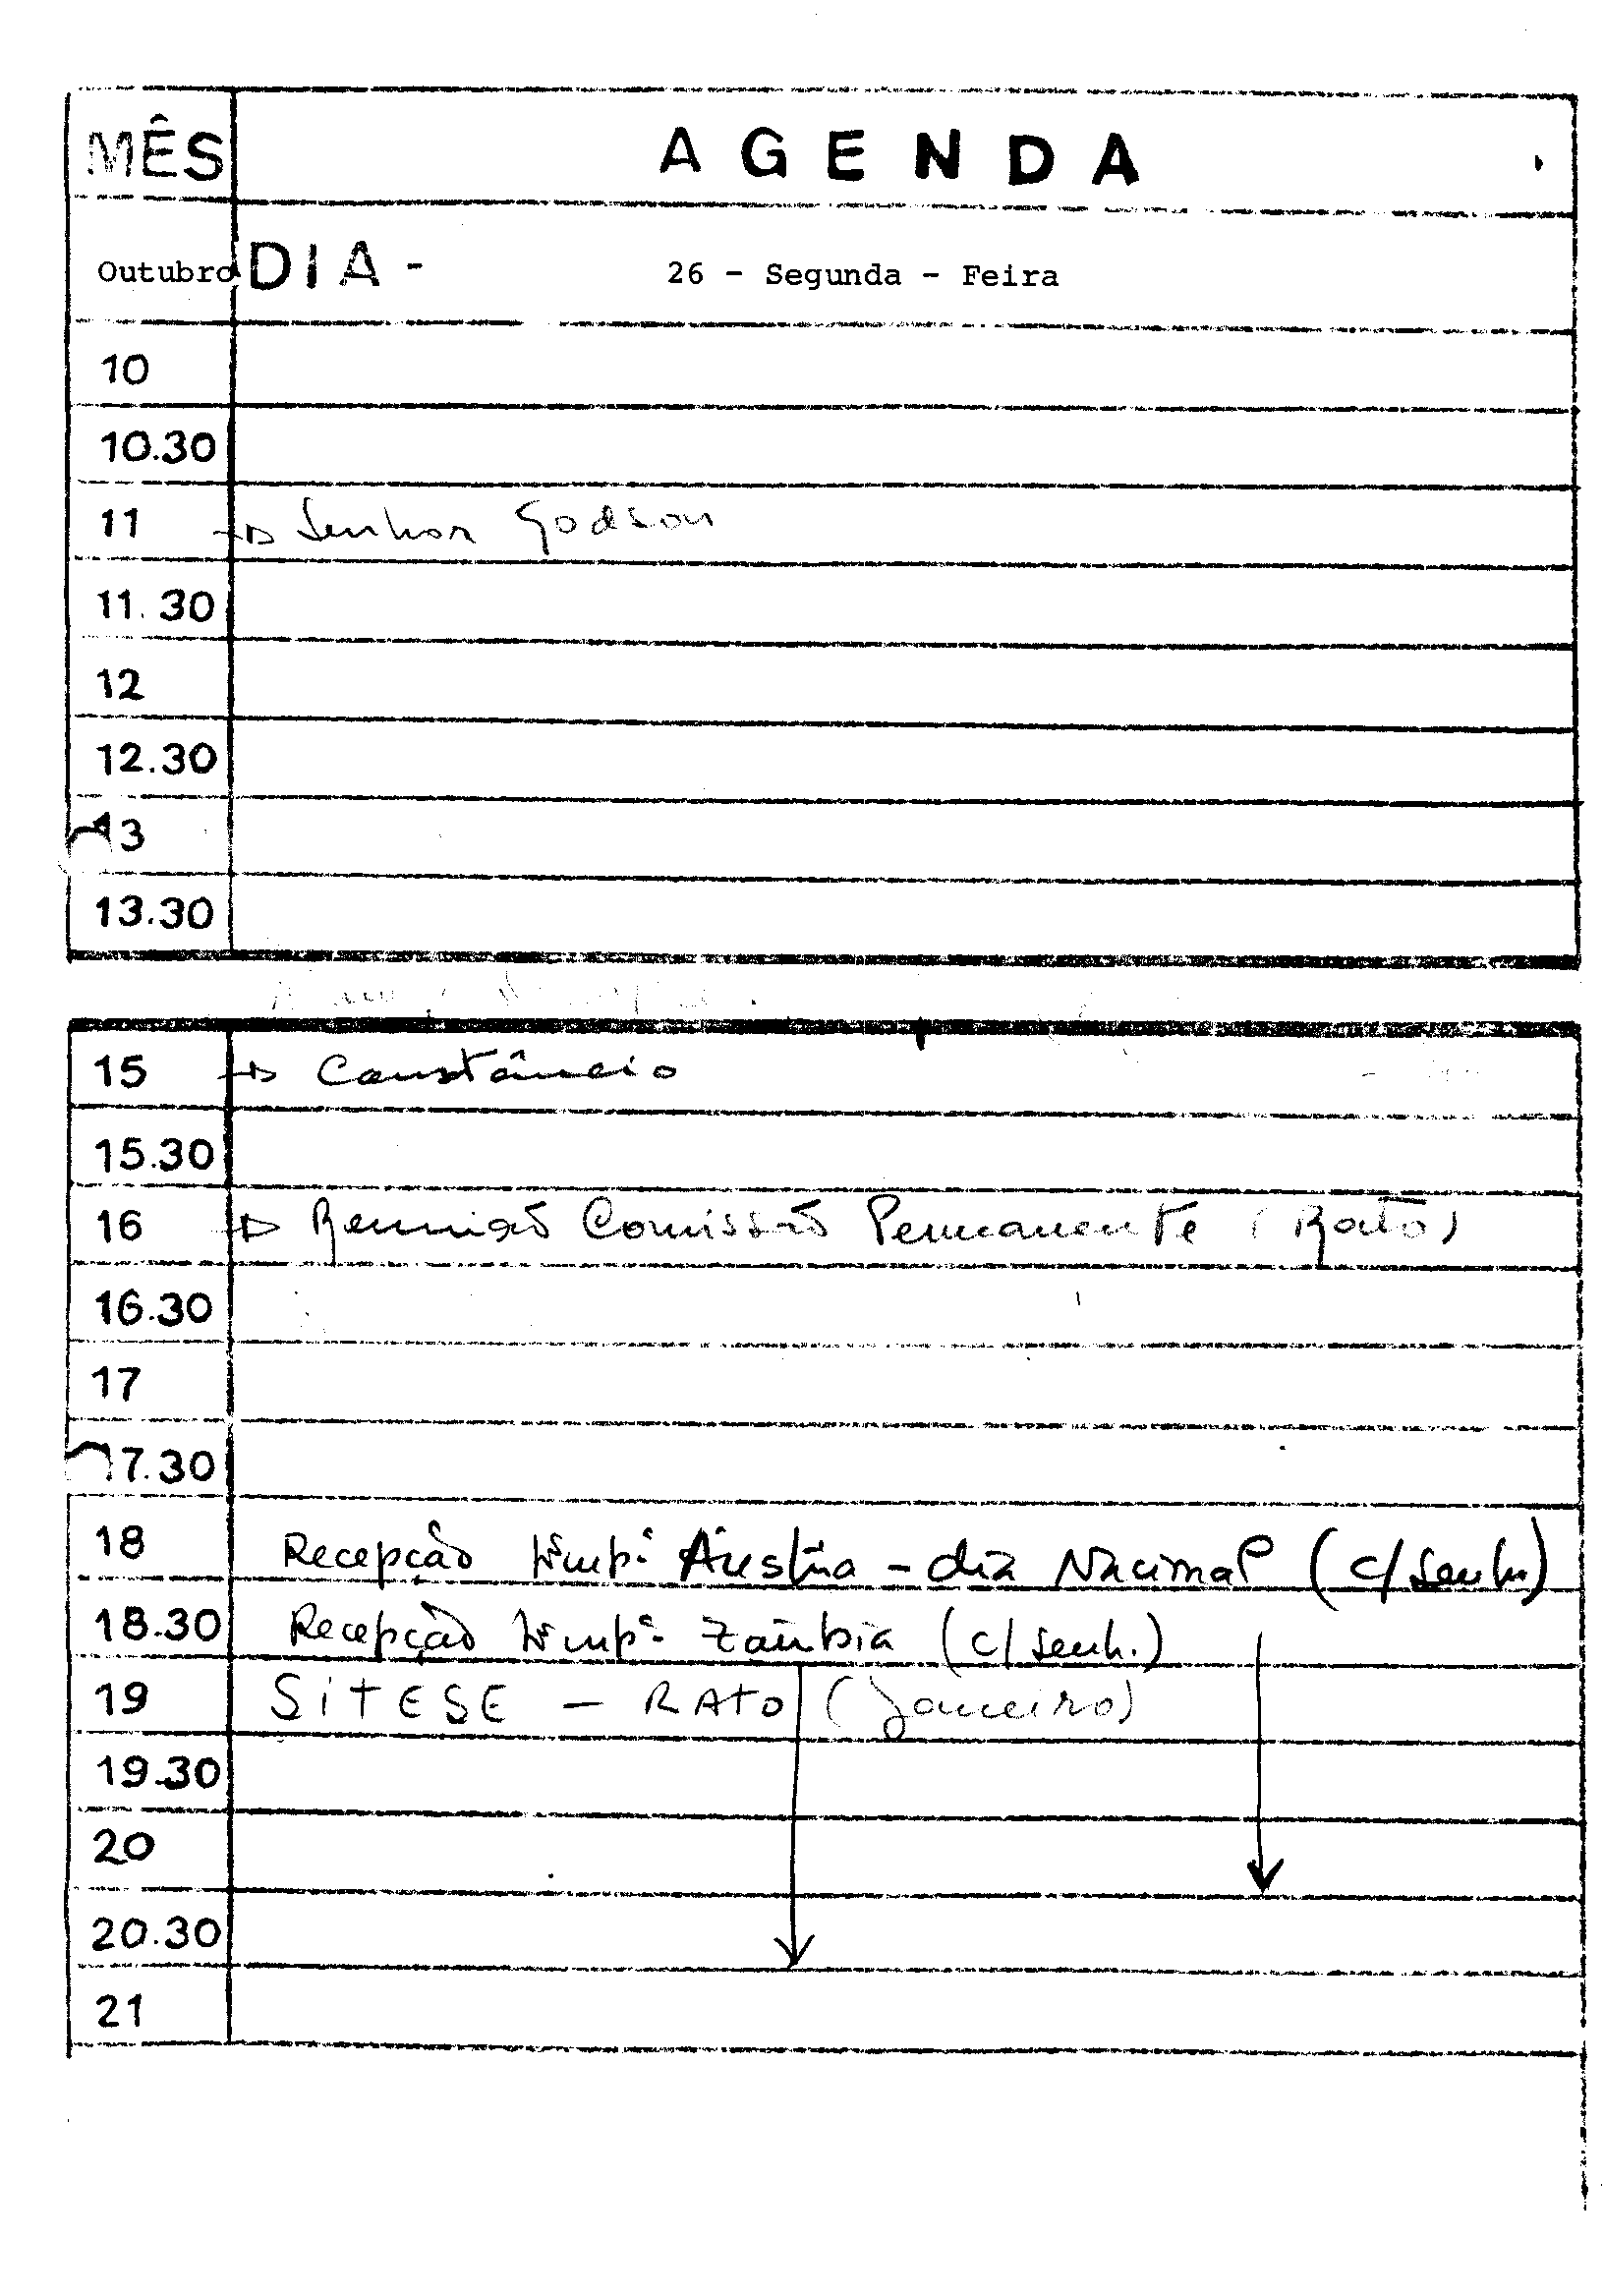 MÊS AGENDA
Outubro DIA - 26 - Segunda - Feira
10
10.30
11 Senhor Godson
11.30
12
12.30
13
13.30
15 Constâncio
15.30
16 Reunião Comissão Permanente (Rato)
16.30
17
17.30
18 Recepção Áustria - dia Nacional (c/senh.)
18.30 Recepção Zâmbia (c/senh.)
19 SITESE - RATO (Janeiro)
19.30
20
20.30
21